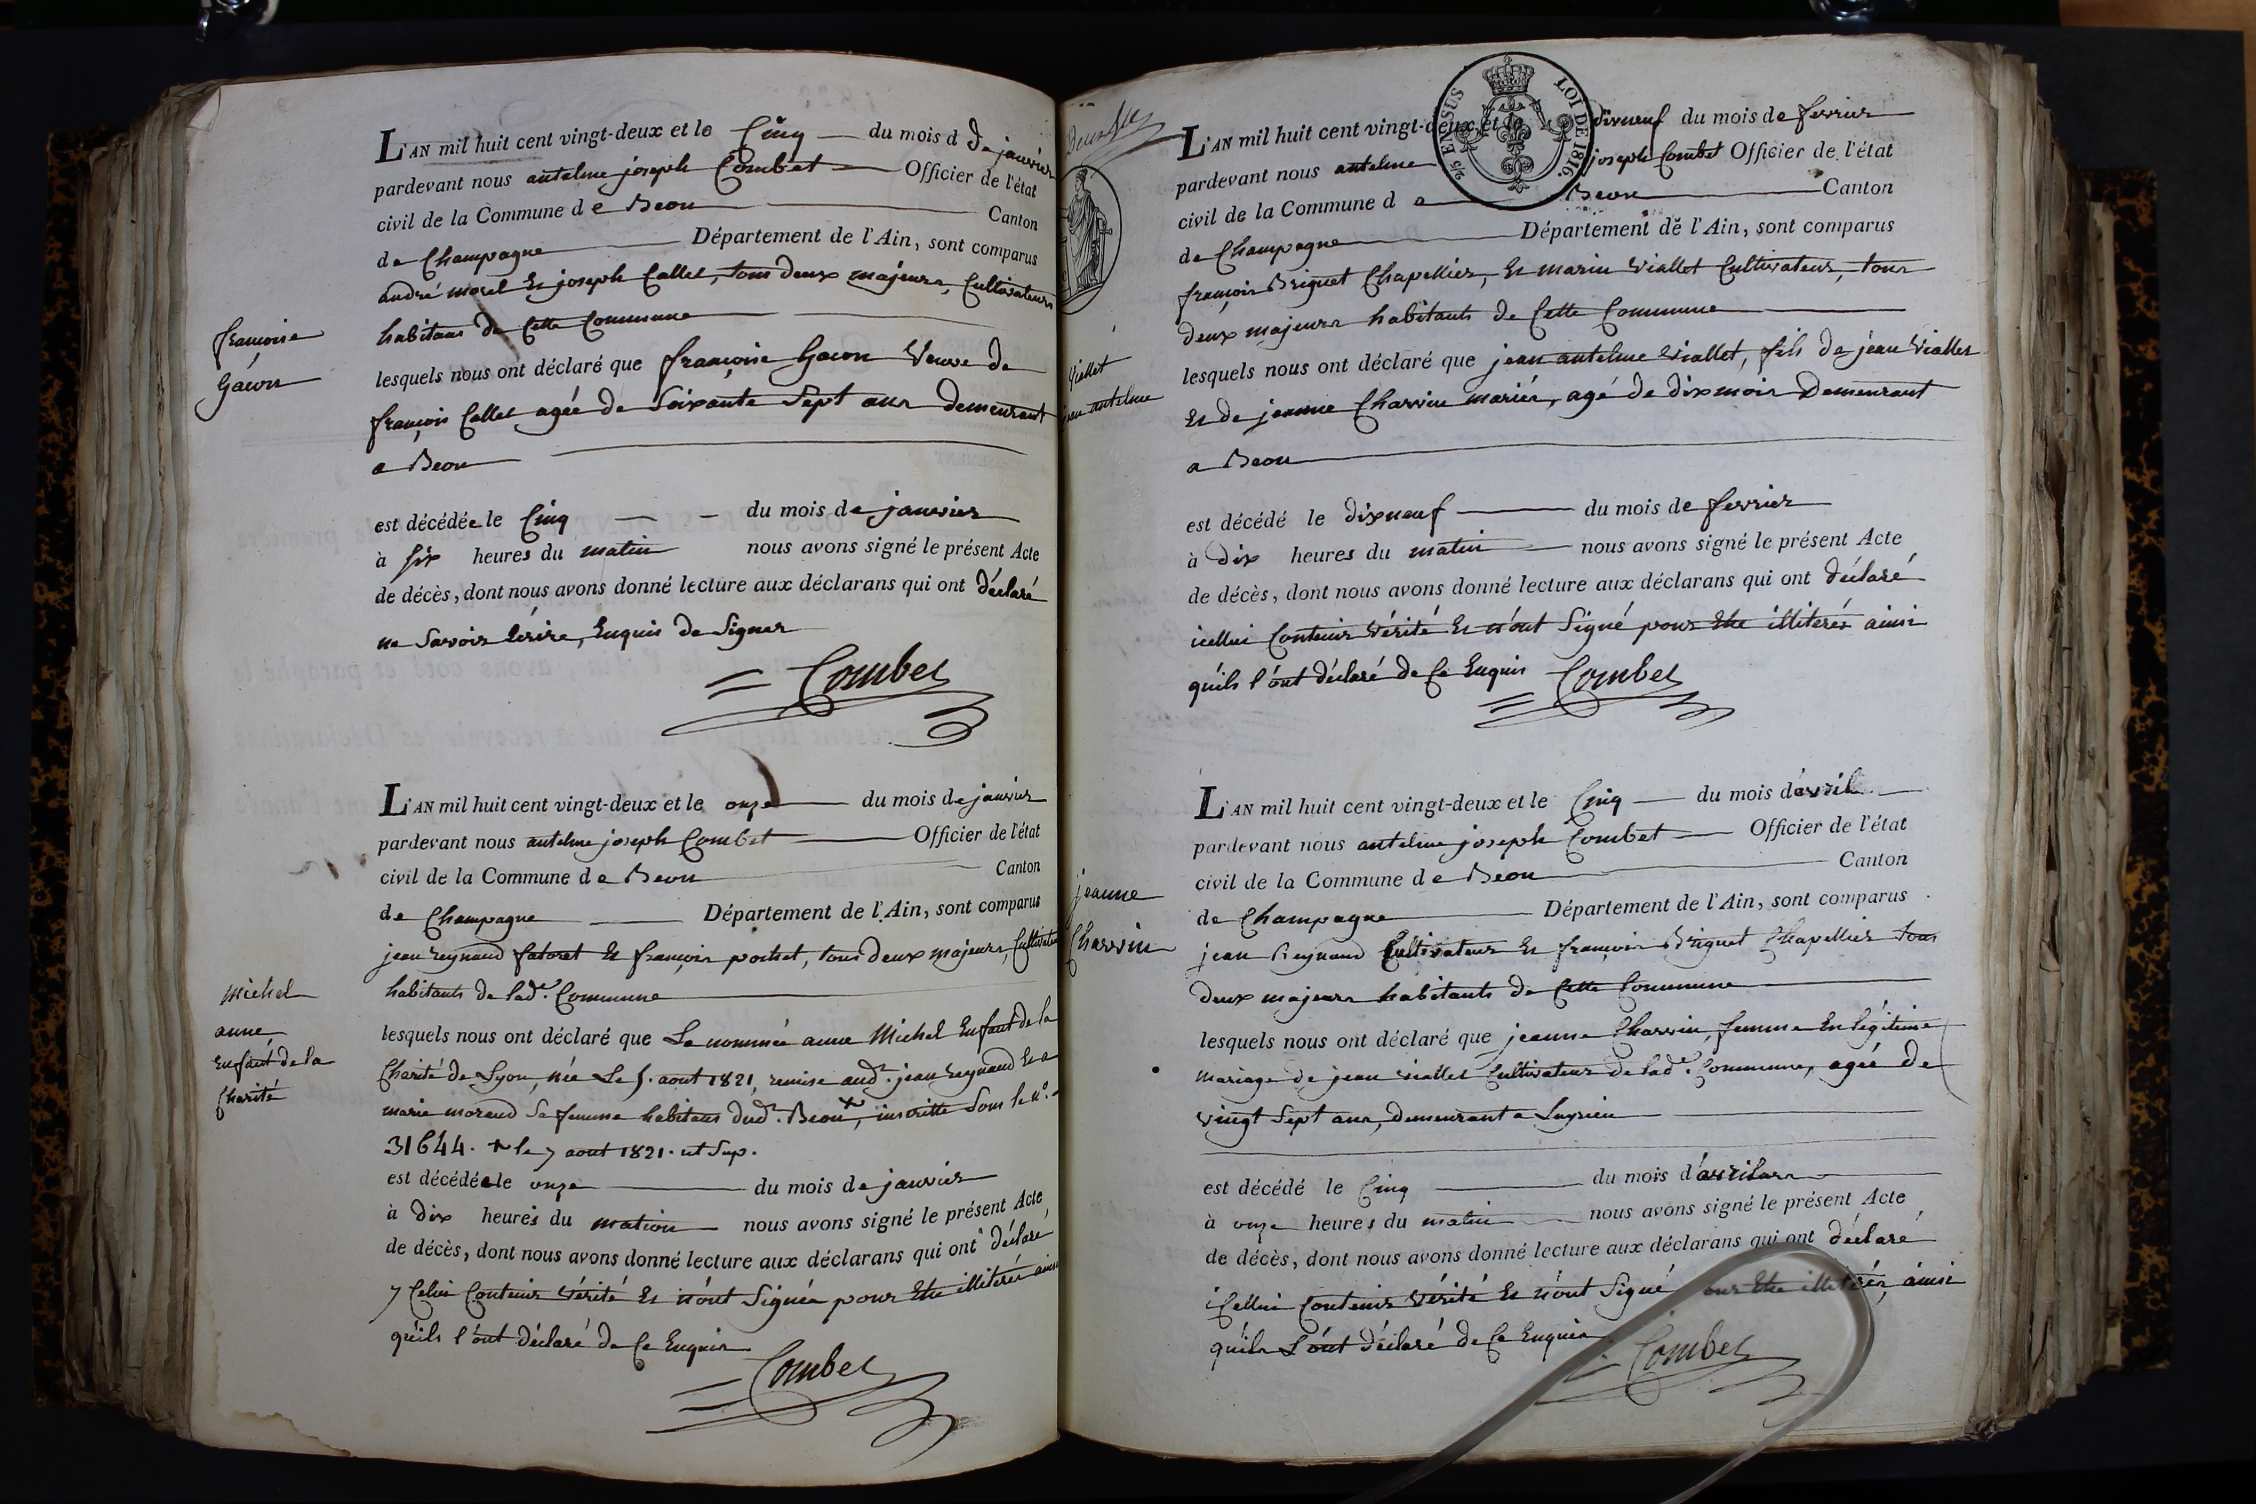 L'AN mil huit cent vingt-deux et le Cinq du mois d de janvier
pardevant nous antelme joseph Combet Officier de l'état
civil de la Commune de Beon Canton
de Champagne Département de l'Ain, sont comparus
andré morel Et joseph Callet, tous deux majeurs, Cultivateurs
habitans de Cette Commune
françoise
Gacon
lesquels nous ont déclaré que françoise Gacon Veuve de
françois Callet agée de Soixante Sept ans demeurant
a Beon
est décédée le Cinq du mois de janvier
à six heures du matin nous avons signé le présent Acte
de décès, dont nous avons donné lecture aux déclarans qui ont déclaré
ne Savoir Ecrire, Enquis de Signer
Combet
L'AN mil huit cent vingt-deux et le onze du mois de janvier
pardevant nous antelme joseph Combet Officier de l'état
civil de la Commune de Beon Canton
de Champagne Département de l'Ain, sont comparus
jean reynaud fatoret Et françois pochet, tous deux majeurs, Cultivate
habitants de lad.e Commune
Michel
anne
Enfant de la
Charité
lesquels nous ont déclaré que La nommée anne Michel Enfant de la
Charité de Lyon, née Le 5. aout 1821, remise aud.t jean reynaud Et a
marie morand Sa femme habitans dud.t Beon +, inscritte Sous le n.o
31644. + le 7 aout 1821. ut Sup.
est décédée le onze du mois de janvier
à dix heures du mation nous avons signé le présent Acte
de décès, dont nous avons donné lecture aux déclarans qui ont déclaré
y Celui Contenir Vérité Et n'ont Signée pour Etre illiterés ainsi
qu'ils l'ont déclaré de Ce Enquis
Combet
25 EN SUS LOI DE 1816.
L'AN mil huit cent vingt-deux et le dixneuf du mois de fevrier
pardevant nous antelme joseph Combet Officier de l'état
civil de la Commune d e Beon Canton
de Champagne Département de l'Ain, sont comparus
françois Briguet Chapellier, Et marin Viallet Cultivateur, tous
deux majeurs habitants de Cette Commune
Viallet
jean antelme
lesquels nous ont déclaré que jean antelme Viallet, fils de jean Viallet
Et de jeanne Charvin mariés, agé de dix mois Demeurant
a Beon
est décédé le dixneuf du mois de fevrier
à dix heures du matin nous avons signé le présent Acte
de décès, dont nous avons donné lecture aux déclarans qui ont déclaré
icellui Contenir Vérité Et n'ont Signé pour Etre illiterés ainsi
qu'ils l'ont déclaré de Ce Enquis Combet
L'AN mil huit cent vingt-deux et le Cinq du mois d'avril
pardevant nous antelme joseph Combet Officier de l'état
civil de la Commune de Beon Canton
de Champagne Département de l'Ain, sont comparus
jeanne
Charvin
jean Reynaud Cultivateur Et françois Briguet Chapellier tous
deux majeurs habitants de Cette Commune
lesquels nous ont déclaré que jeanne Charvin, femme En légitime
mariage de jean Viallet Cultivateur de lad.e Commune, agée de
vingt Sept ans, demeurant a Luyrieu
est décédé le Cinq du mois d'avril
à onze heures du matin nous avons signé le présent Acte
de décès, dont nous avons donné lecture aux déclarans qui ont déclaré
icellui Contenir Vérité Et n'ont Signé pour Etre illiterés, ainsi
qu'ils L'ont déclaré de Ce Enquis
Combet